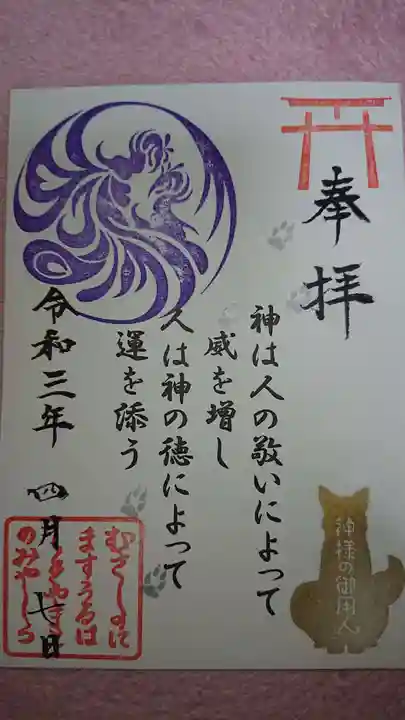 奉拝
神は人の敬いによって
威を増し
人は神の徳によって
運を添う
令和三年 四月七日
神様の御用人
むさしのに
ますうるは
のみやしろ